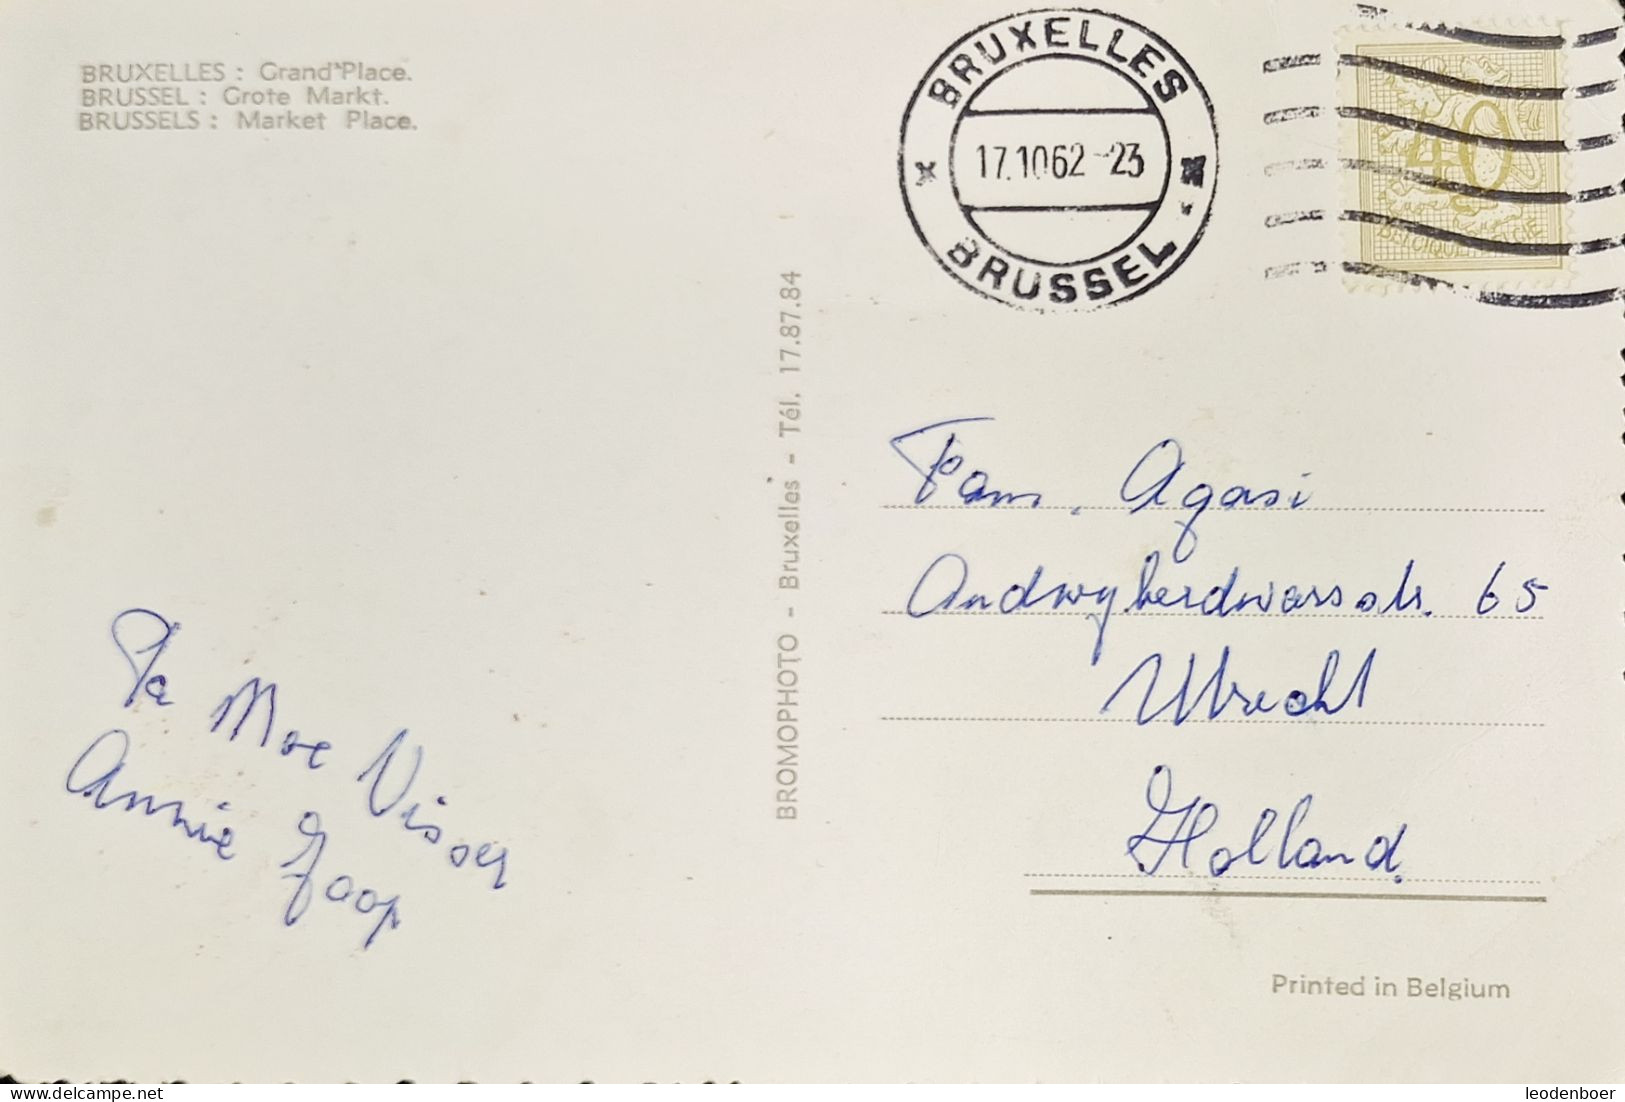 BRUXELLES : Grand'Place.
BRUSSEL : Grote Markt.
BRUSSELS : Market Place.
BRUXELLES
17.1062-23
BRUSSEL
40
BELGIQUE BELGIE
BROMOPHOTO - Bruxelles - Tél. 17.87.84
Fam. Agasi
Andwyherdwarsstr. 65
Utrecht
Holland.
Pa Moe Visser
Annie Joop
Printed in Belgium
leodenboer